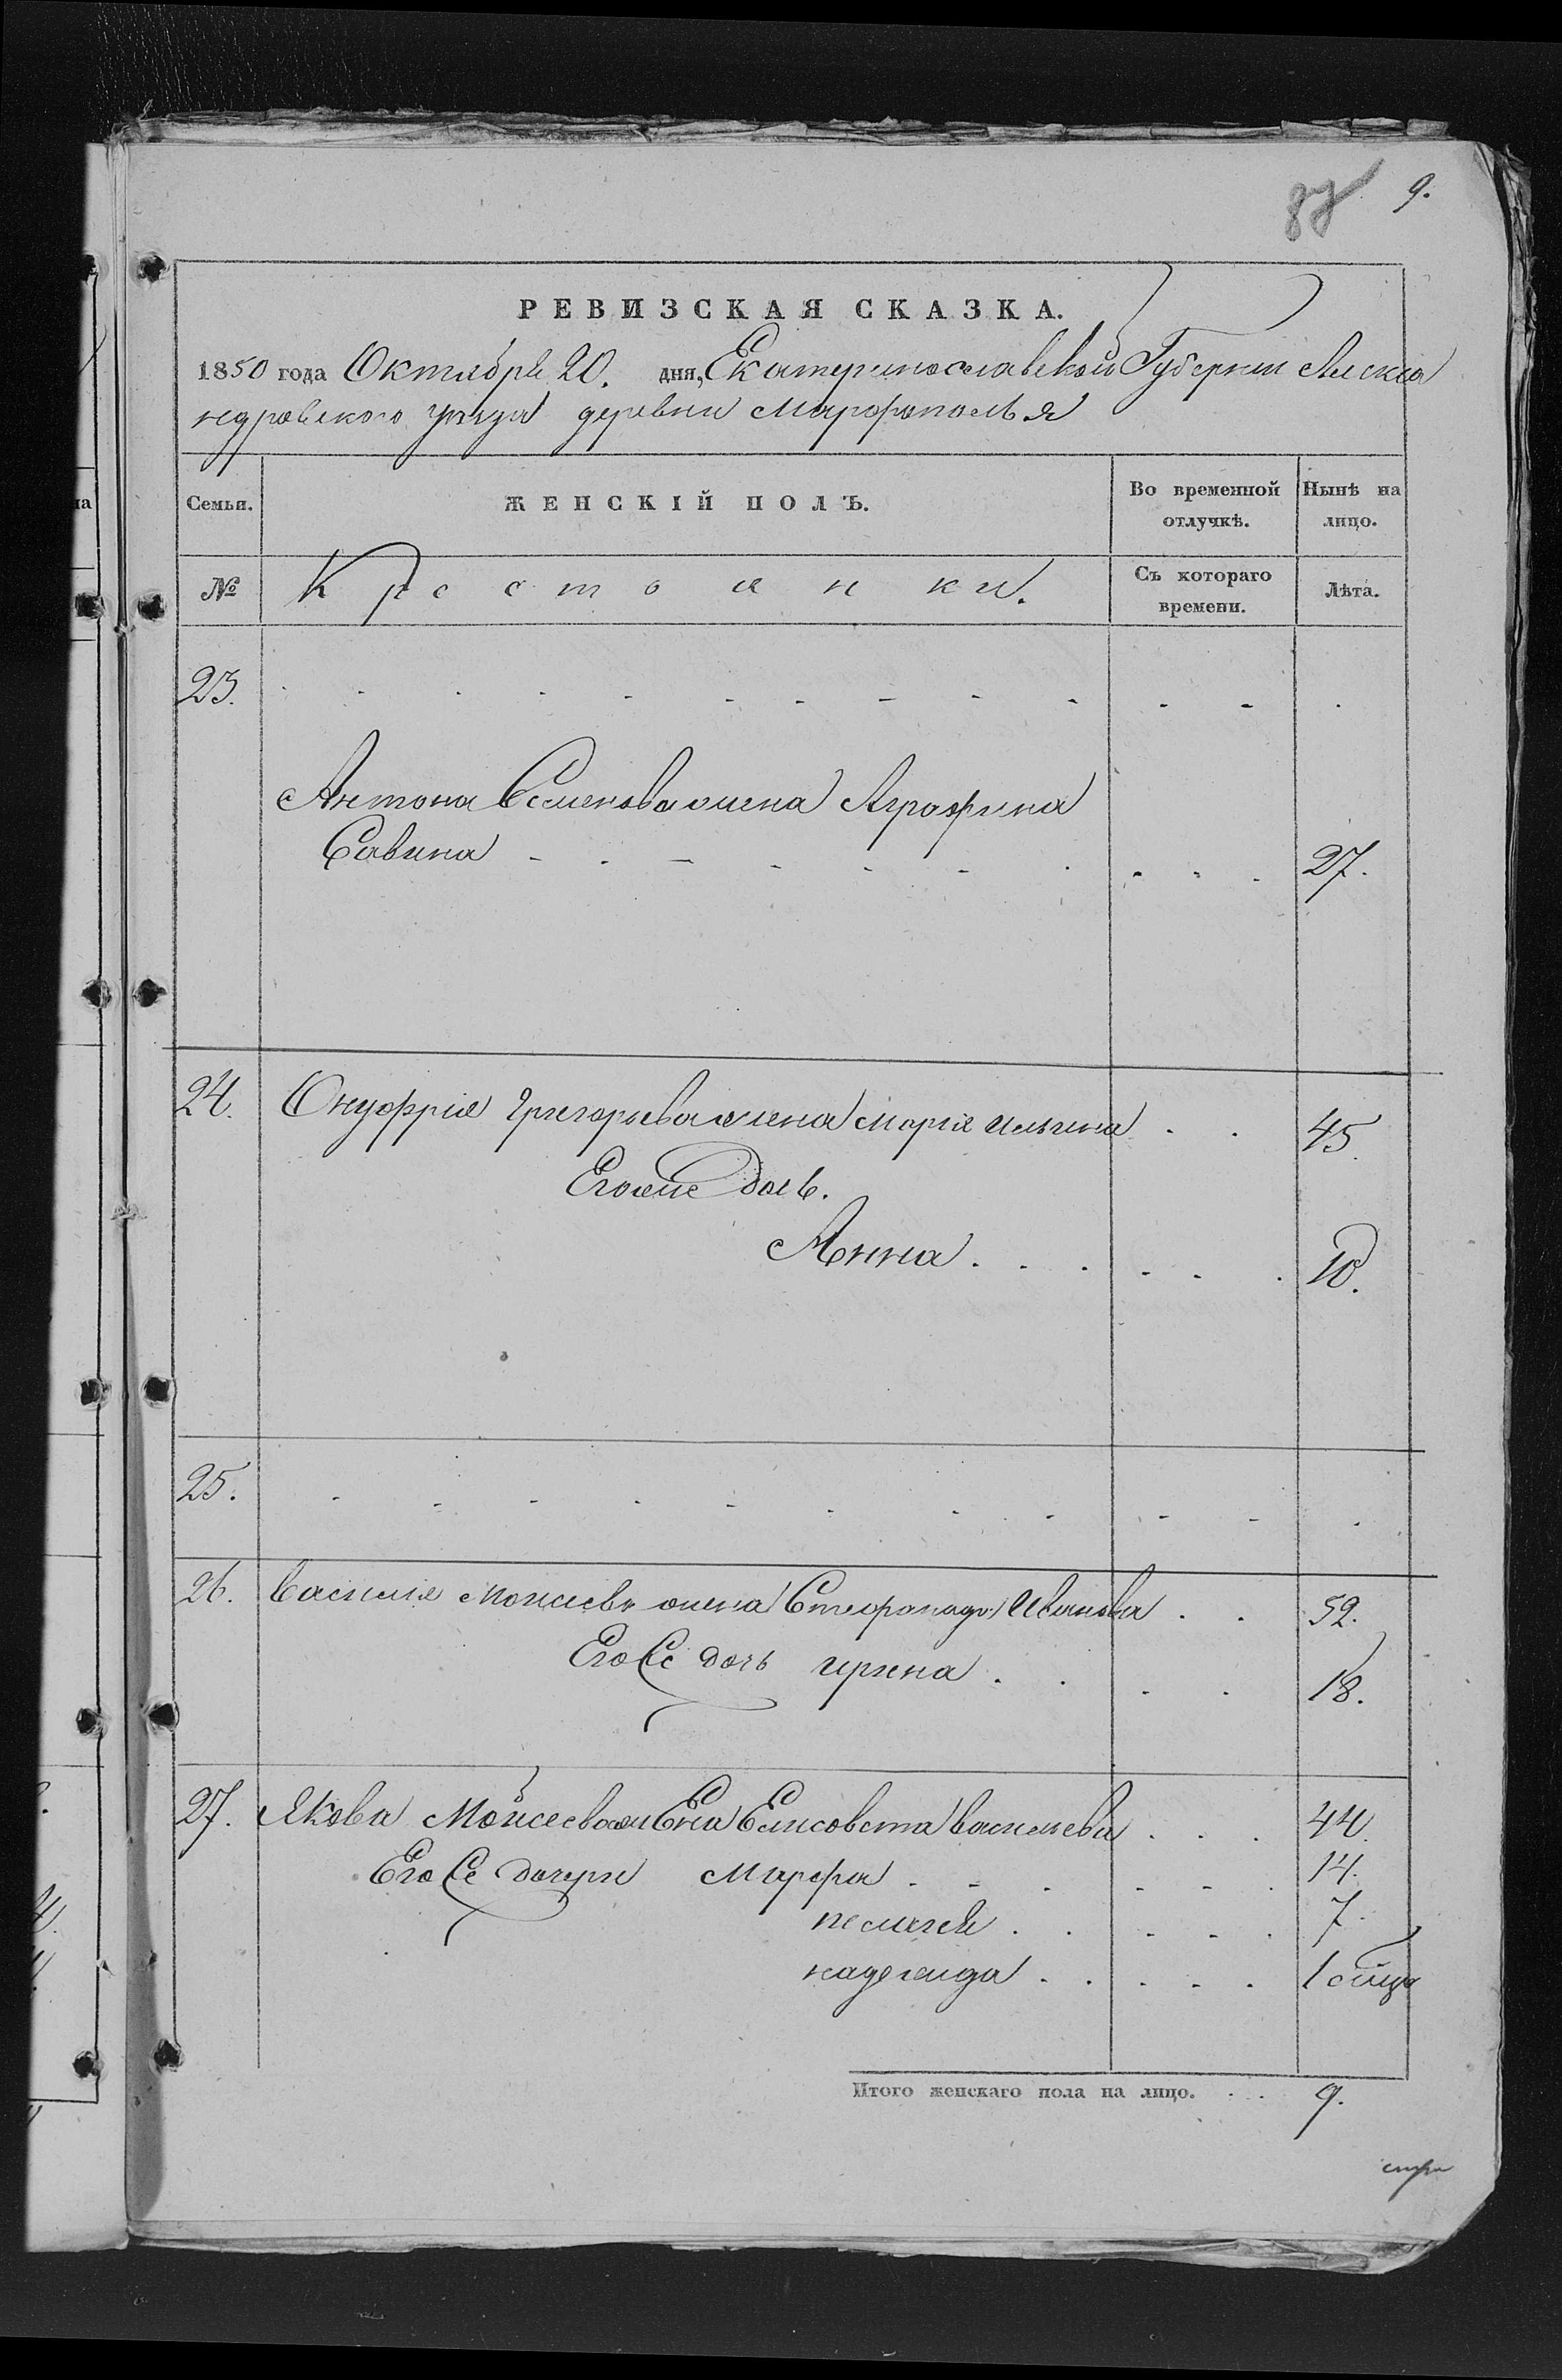 87 9.
РЕВИЗСКАЯ СКАЗКА.
1850 года Октября 20. дня, Екатеринославской Губернии Алекса
ндровского уѣзда деревни Марфополья
Семьи. ЖЕНСКІЙ ПОЛЪ. Во временной отлучкѣ. Нынѣ на лицо.
№ Крестоянки. Съ котораго времени. Лѣта.
23.
Антона Семенова жена Аграфина
Савина 27.
24. Онуфрія Григорьева жена Марія Ильина 45.
Егоже дочь.
Анна 10.
25.
26. Василія Моисеева жена Стефанида Иванова 52.
Его Же дочь Ирина 18.
27. Якова Мойсеева жена Елисовета Васильева 44.
Его Же дочери Марфа 14.
Пелагея 7.
Надежда 1
Итого женскаго пола на лицо. 9.